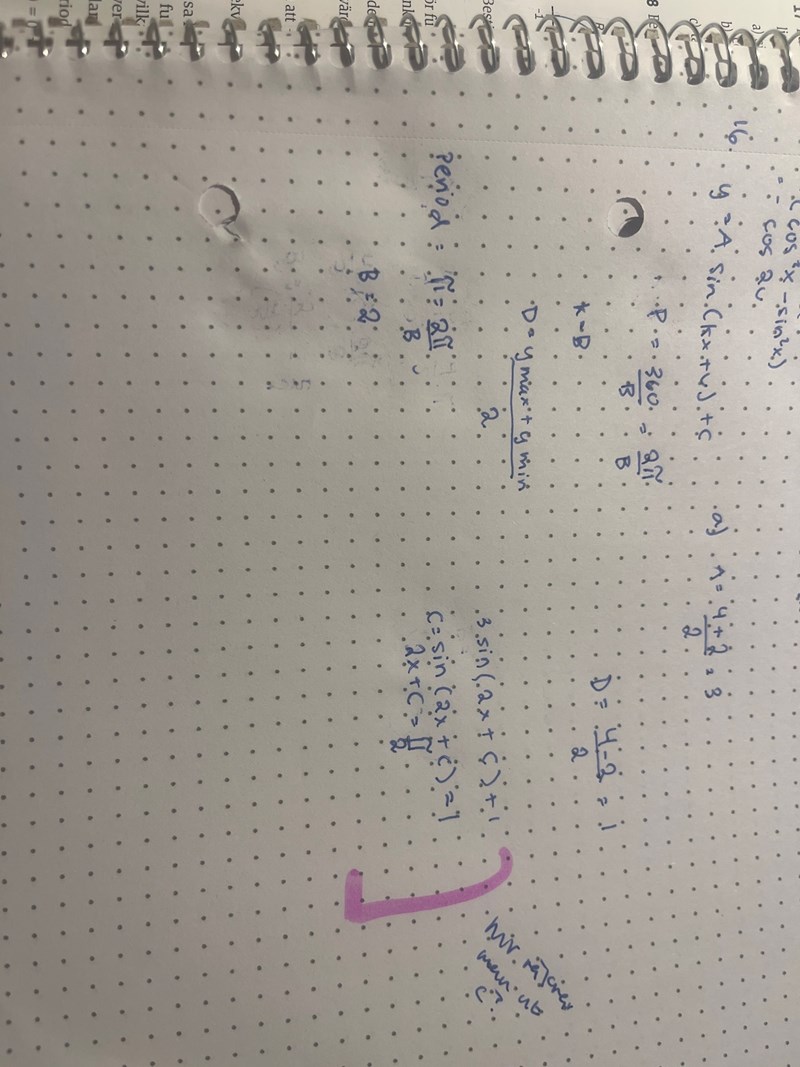 (cos²x - sin²x)
= - cos 2v
16.
y = A sin (kx + v) + c
P = 360/B = 2π/B
k = B
D = y max + y min / 2
Period = π = 2π/B
B = 2
a) A = 4+2/2 = 3
D = 4-2/2 = 1
3 sin (2x + C) + 1
C = sin (2x + C) = 1
2x + C = π/2
Hur räknar
man ut
C